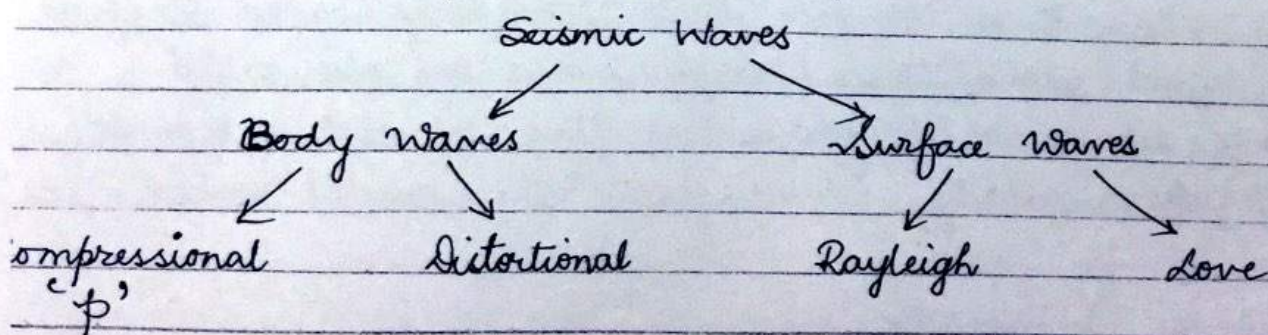 Seismic Waves
Body Waves Surface Waves
ompressional Distortional Rayleigh Love
'p'